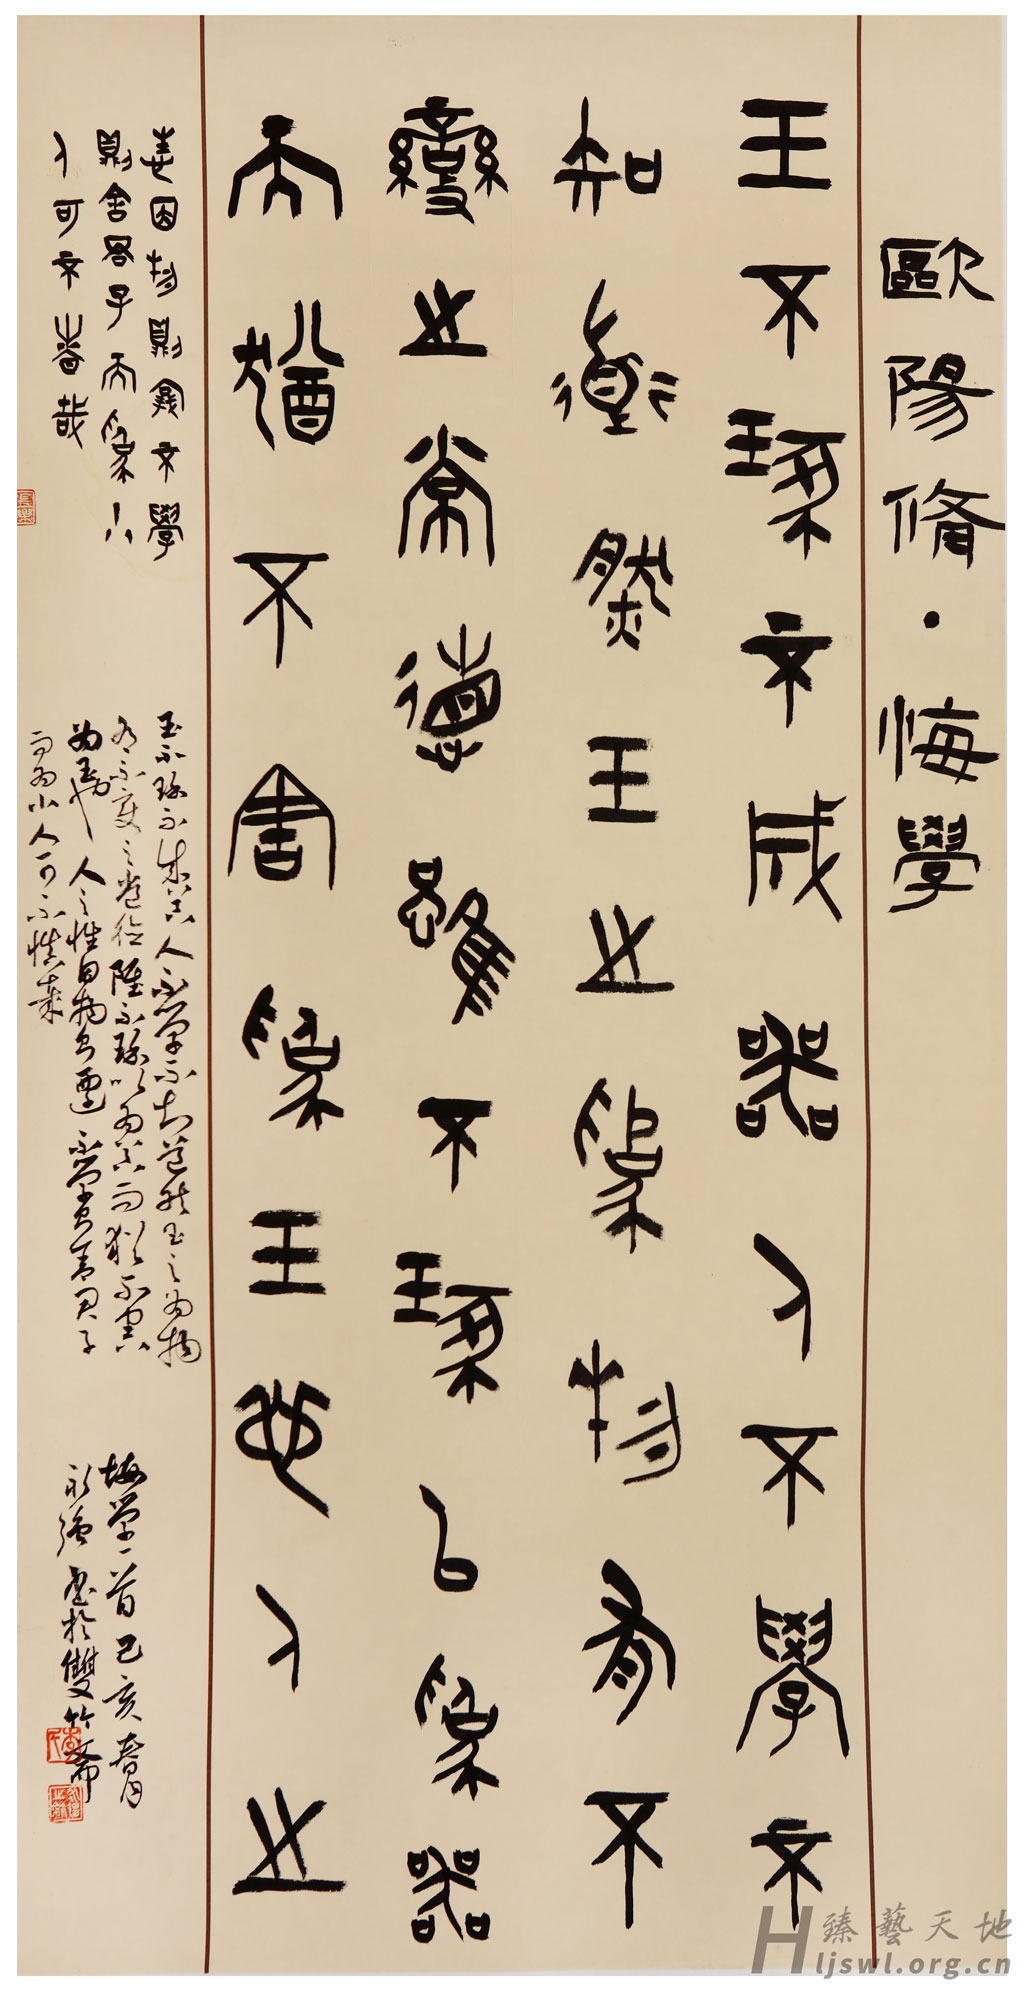 歐陽脩·悔學
玉不琢不成器人不學不
知道然玉之為物有不
變之常德雖不琢以為器
而猶不害為玉也人之
性因物則遷不學
則舍君子而為小
人可不慎哉
玉不琢不成器人不學不知道然玉之為物
有不變之常德雖不琢以為器而猶不害
為玉也人之性因物則遷不學則舍君子
而為小人可不慎哉
悔學一首己亥春月
永強書於雙竹齋
臻藝天地
Hljswl.org.cn